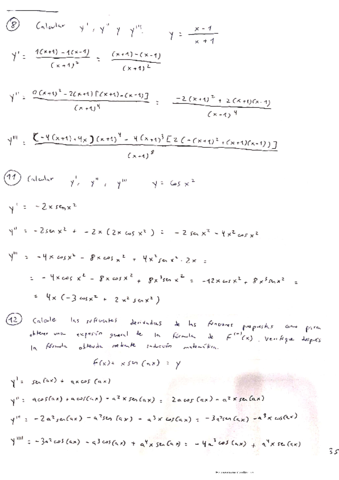 ⑧ Calcular y', y'' y y'''. y = x-1 / x+1
y' = 1(x+1) - 1(x-1) / (x+1)² = (x+1) - (x-1) / (x+1)²
y'' = 0(x+1)² - 2(x+1)[(x+1) - (x-1)] / (x+1)⁴ = -2(x+1)² + 2(x+1)(x-1) / (x+1)⁴
y''' = [-4(x+1)+4x](x+1)⁴ - 4(x+1)³[2(-(x+1)² + (x+1)(x-1))] / (x+1)⁸
⑪ Calcular y', y'', y''' y = cos x²
y' = -2x sen x²
y'' = -2 sen x² + -2x (2x cos x²) = -2 sen x² - 4x² cos x²
y''' = -4x cos x² - 8x cos x² + 4x² sen x² · 2x =
= -4x cos x² - 8x cos x² + 8x³ sen x² = -12x cos x² + 8x³ sen x² =
= 4x (-3 cos x² + 2x² sen x²)
⑫ Calcule las derivadas de las funciones propuestas como para
obtener una expresión general de la fórmula de f⁽ⁿ⁾(x). Verifique después
la fórmula obtenida mediante inducción matemática.
f(x) = x sen (ax) = y
y' = sen(ax) + ax cos(ax)
y'' = a cos(ax) + a cos(ax) - a² x sen(ax) = 2a cos(ax) - a² x sen(ax)
y''' = -2a² sen(ax) - a² sen(ax) - a³ x cos(ax) = -3a² sen(ax) - a³ x cos(ax)
y'''' = -3a³ cos(ax) - a³ cos(ax) + a⁴ x sen(ax) = -4a³ cos(ax) + a⁴ x sen(ax)
35